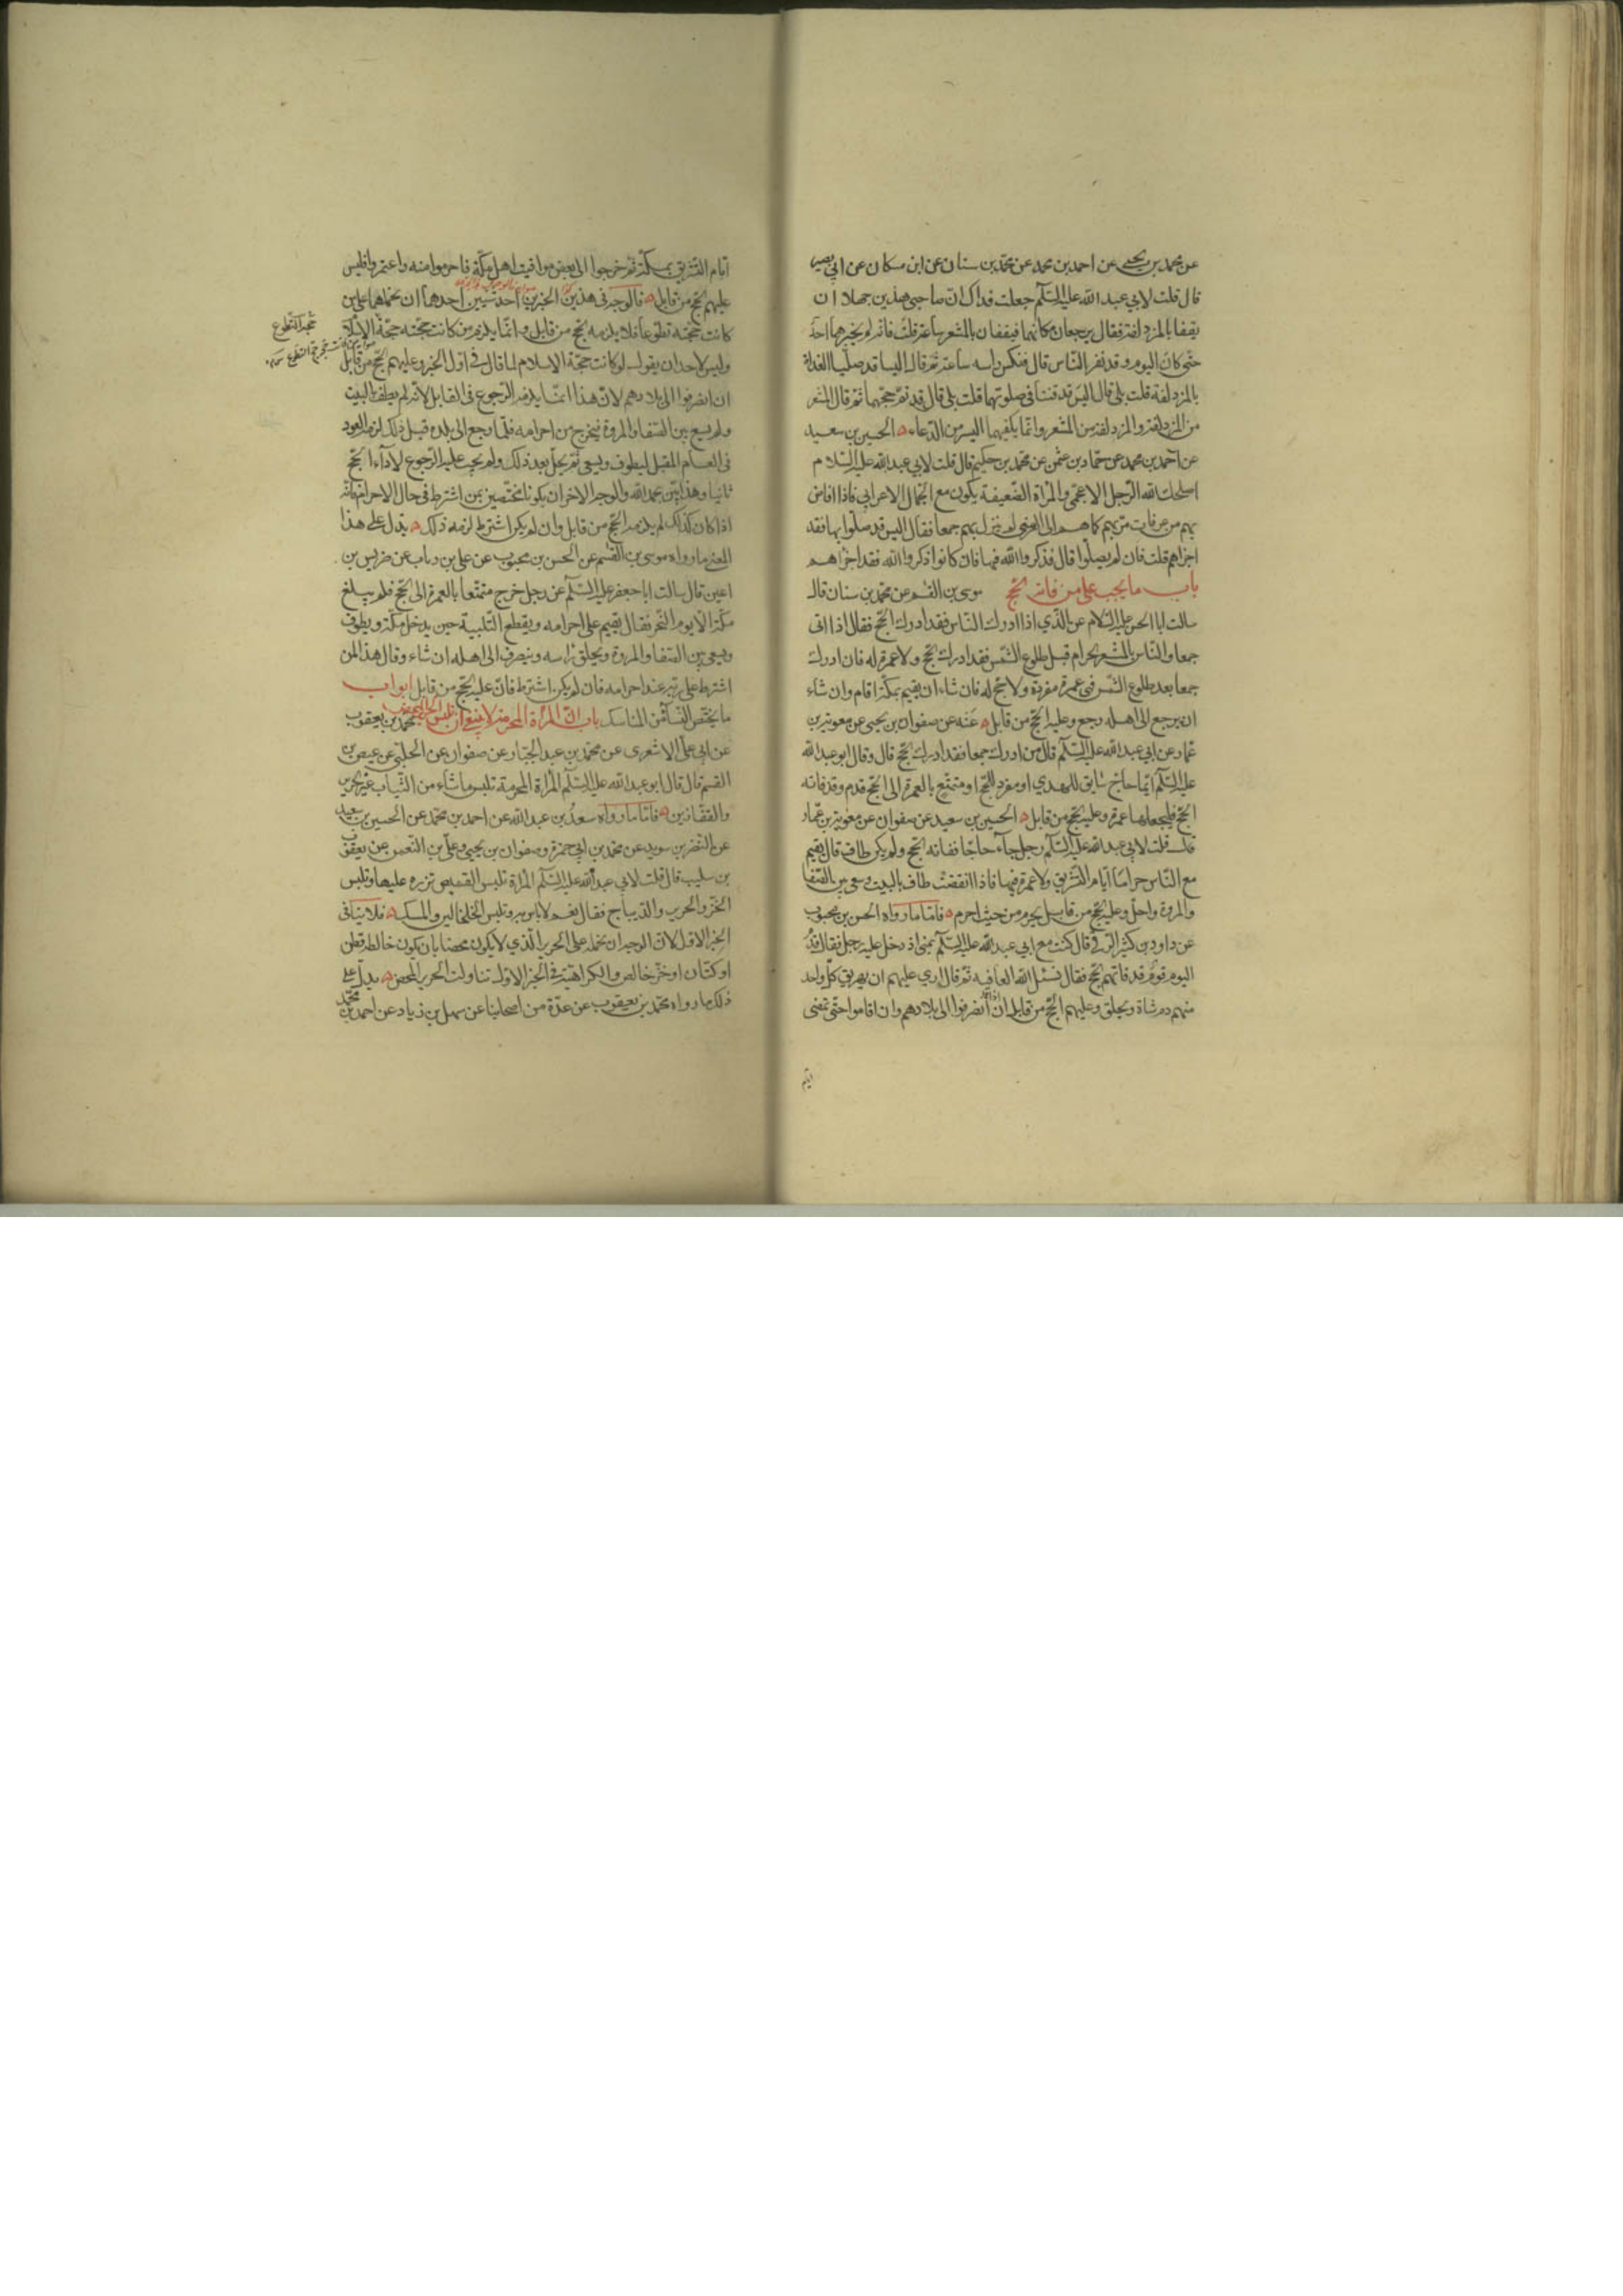 عن محمد بن يحيى عن احمد بن محمد عن محمد بن سنان عن ابن مسكان عن ابي بصير
قال قلت لابي عبد الله عليه السلم جعلت فداك ان صاحبي هذين جهلا ان
يقفا بالمزدلفة فقال يرجعان مكانهما فيقفان بالمشعر ساعة قلت فانه لم يخبرهما احد
حتى كان اليوم وقد نفر الناس قال فنكس راسه ساعة ثم قال اليسا قد صليا الغداة
بالمزدلفة قلت بلى قال اليس قد قنتا في صلوتهما قلت بلى قال قد تم حجهما ثم قال المشعر
من المزدلفة والمزدلفة من المشعر وانما يكفيهما اليسر من الدعاء الحسين بن سعيد
عن احمد بن محمد عن حماد بن عثمن عن محمد بن حكيم قال قلت لابي عبد الله عليه السلام
اصلحك الله الرجل الاعجمي والمراة الضعيفة يكون مع الجمال الاعرابي فاذا افاض
بهم من عرفات مر بهم كما هم الى منى لم ينزل بهم جمعا فقال اليس قد صلوا بها فقد
اجزاهم قلت فان لم يصلوا قال فذكروا الله فيها فان كانوا ذكروا الله فقد اجزاهم
باب ما يجب على من فاته الحج موسى بن القسم عن محمد بن سنان قال
سالت ابا الحسن عليه السلام عن الذي اذا ادرك الناس فقد ادرك الحج فقال اذا اتى
جمعا والناس بالمشعر الحرام قبل طلوع الشمس فقد ادرك الحج ولا عمرة له فان ادرك
جمعا بعد طلوع الشمس فهي عمرة مفردة ولا حج له فان شاء ان يقيم بمكة اقام وان شاء
ان يرجع الى اهله رجع وعليه الحج من قابل عنه عن صفوان بن يحيى عن معوية بن
عمار عن ابي عبد الله عليه السلم قال من ادرك جمعا فقد ادرك الحج قال وقال ابو عبد الله
عليه السلم ايما حاج سايق للهدي او مفرد للحج او متمتع بالعمرة الى الحج قدم وقد فاته
الحج فليجعلها عمرة وعليه الحج من قابل الحسين بن سعيد عن صفوان عن معوية بن عمار
قال قلت لابي عبد الله عليه السلم رجل جاء حاجا ففاته الحج ولم يكن طاف قال يقيم
مع الناس حراما ايام التشريق ولا عمرة فيها فاذا انقضت طاف بالبيت وسعى بين الصفا
والمروة واحل وعليه الحج من قابل يحرم من حيث احرم فاما ما رواه الحسن بن محبوب
عن داود بن كثير الرقي قال كنت مع ابي عبد الله عليه السلم بمنى اذ دخل عليه رجل فقال قدم
اليوم قوم قد فاتهم الحج فقال نسئل الله العافية ثم قال ارى عليهم ان يهريق كل واحد
منهم دم شاة ويحلق وعليهم الحج من قابل ان انصرفوا الى بلادهم وان اقاموا حتى تمضى
ايام
ايام التشريق بمكة ثم خرجوا الى بعض مواقيت اهل مكة فاحرموا منه واعتمروا فليس
عليهم الحج من قابل فالوجه في هذين الخبرين احد شيين احدهما ان نحملهما على من
كانت حجته تطوعا فلا يلزمه الحج من قابل وانما يلزم من كانت حجته حجة الاسلام
وليس لاحد ان يقول لو كانت حجة الاسلام لما قال في اول الخبر وعليهم الحج من قابل
ان انصرفوا الى بلادهم لان هذا انما يلزمه الرجوع في القابل لانه لم يطف بالبيت
ولم يسع بين الصفا والمروة فيخرج من احرامه فلما رجع الى بلده قبل ذلك لزمه العود
في العام المقبل ليطوف ويسعى ثم يحل بعد ذلك ولم يجب عليه الرجوع لاداء الحج
ثانيا وهذا بين بحمد الله والوجه الاخر ان يكونا مختصين بمن اشترط في حال الاحرام فانه
اذا كان كذلك لم يلزمه الحج من قابل وان لم يكن اشترط لزمه ذلك يدل على هذا
المعنى ما رواه موسى بن القسم عن الحسن بن محبوب عن علي بن رياب عن ضريس بن
اعين قال سالت ابا جعفر عليه السلم عن رجل خرج متمتعا بالعمرة الى الحج فلم يبلغ
مكة الا يوم النحر فقال يقيم على احرامه ويقطع التلبية حين يدخل مكة ويطوف
ويسعى بين الصفا والمروة ويحلق راسه وينصرف الى اهله ان شاء وقال هذا لمن
اشترط على ربه عند احرامه فان لم يكن اشترط فان عليه الحج من قابل ابواب
ما يختص النساء من المناسك باب ان المراة المحرمة لا ينبغي ان تلبس الحرير المحض محمد بن يعقوب
عن ابي علي الاشعري عن محمد بن عبد الجبار عن صفوان عن الحلبي عن عيص بن
القسم قال قال ابو عبد الله عليه السلم المراة المحرمة تلبس ما شاءت من الثياب غير الحرير
والقفازين فاما ما رواه سعد بن عبد الله عن احمد بن محمد عن الحسين بن سعيد
عن النضر بن سويد عن محمد بن ابي حمزة وصفوان بن يحيى وعلي بن النعمن عن يعقوب
بن قال قلت لابي عبد الله عليه السلم المراة تلبس القميص تزره عليها وتلبس
الخز والحرير والديباج فقال نعم لا باس به وتلبس الخلخالين والمسك فلا ينافي
الخبر الاول لان الوجه ان نحمله على الحرير الذي لا يكون محضا بان يكون خالطه قطن
او كتان او خز خالص والكراهية في الخبر الاول تناولت الحرير المحض يدل على
ذلك ما رواه محمد بن يعقوب عن عدة من اصحابنا عن سهل بن زياد عن احمد بن محمد